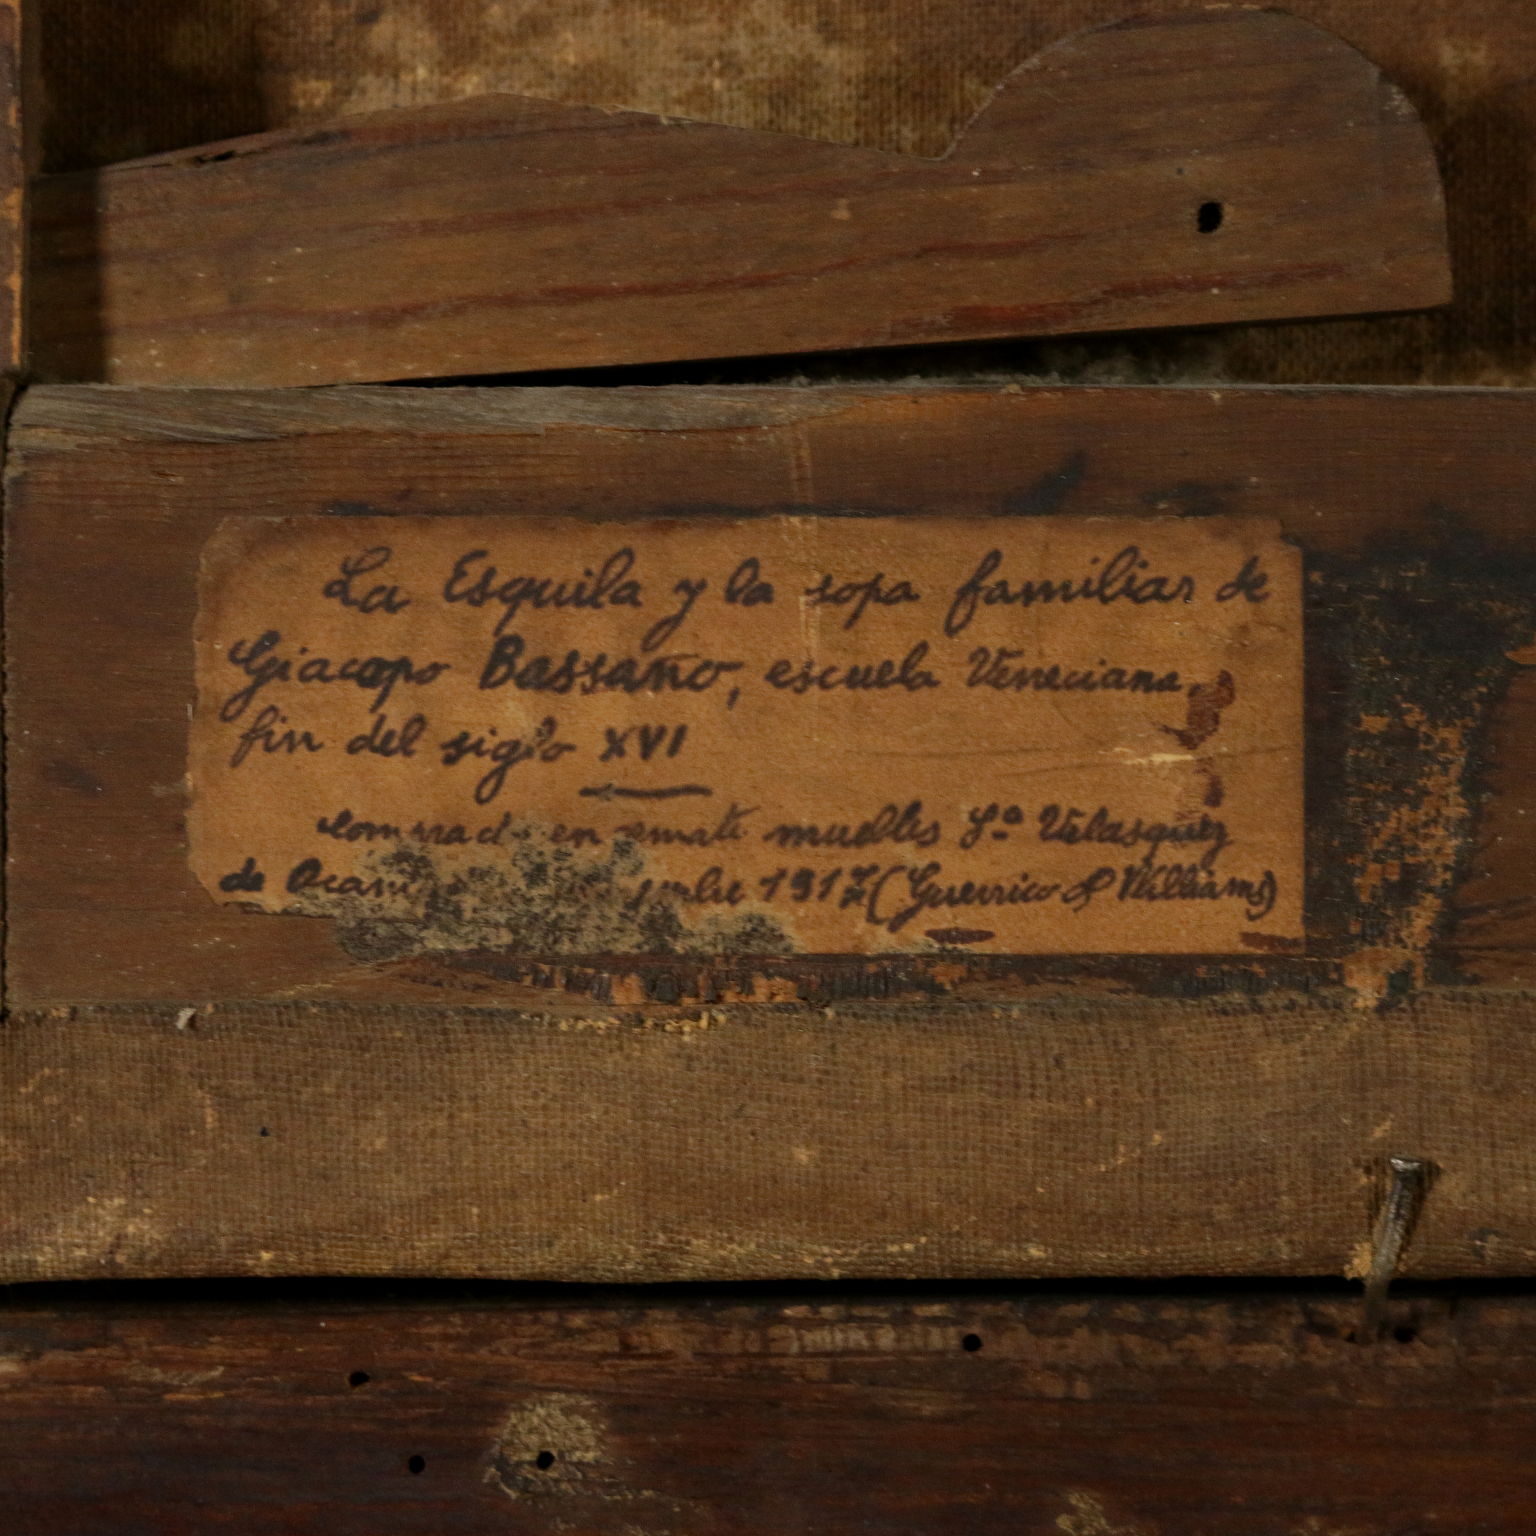 La Esquila y la sopa familiar de
Giacopo Bassano, escuela Veneciana,
fin del siglo XVI
en muebles Sª Velasquez
de 1917 (Guerrico & Williams)